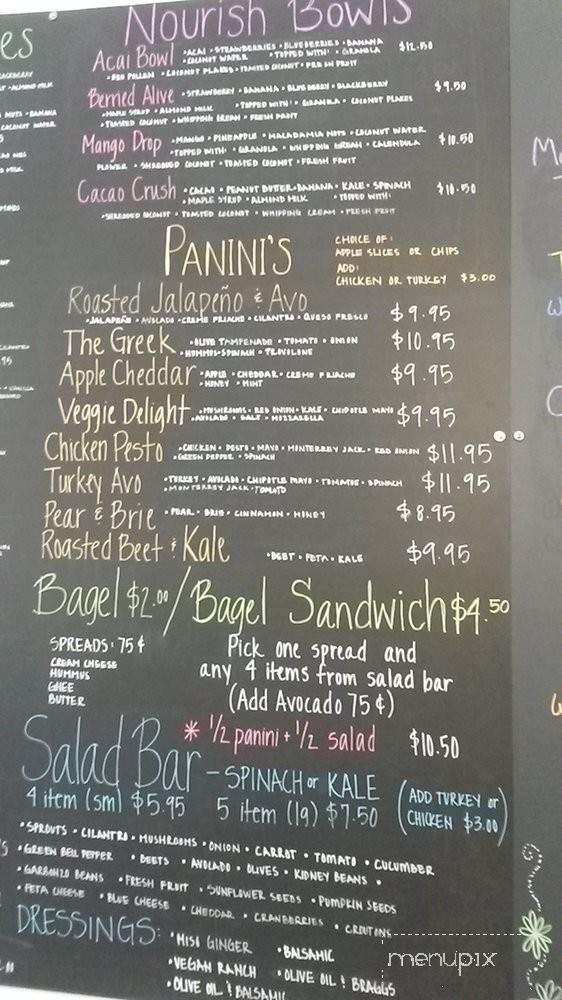 es
Nourish Bowls
Acai Bowl • ACAI • STRAWBERRIES • BLUEBERRIES • BANANA $12.50
• COCONUT WATER • TOPPED WITH: • GRANOLA
• BEE POLLEN • COCONUT FLAKES • TOASTED COCONUT • FRESH FRUIT
Berried Alive • STRAWBERRY • BANANA • BLUEBERRY • BLACKBERRY $9.50
• MAPLE SYRUP • ALMOND MILK • TOPPED WITH: • GRANOLA • COCONUT FLAKES
• TOASTED COCONUT • WHIPPING CREAM • FRESH FRUIT
Mango Drop • MANGO • PINEAPPLE • MACADAMIA NUTS • COCONUT WATER $10.50
• TOPPED WITH: • GRANOLA • WHIPPING CREAM • CALENDULA
FLOWER • SHREDDED COCONUT • TOASTED COCONUT • FRESH FRUIT
Cacao Crush • CACAO • PEANUT BUTTER • BANANA • KALE • SPINACH $10.50
• MAPLE SYRUP • ALMOND MILK • TOPPED WITH:
• SHREDDED COCONUT • TOASTED COCONUT • WHIPPING CREAM • FRESH FRUIT
PANINI'S
CHOICE OF:
APPLE SLICES OR CHIPS
ADD:
CHICKEN OR TURKEY $3.00
Roasted Jalapeño & Avo $9.95
• JALAPEÑO • AVOCADO • CREME FRIACHE • CILANTRO • QUESO FRESCO
The Greek • OLIVE TAMPENADE • TOMATO • ONION $10.95
• HUMMUS • SPINACH • PROVOLONE
Apple Cheddar • APPLE • CHEDDAR • CREME FRIACHE $9.95
• HONEY • MINT
Veggie Delight • MUSHROOMS • RED ONION • KALE • CHIPOTLE MAYO $9.95
• AVOCADO • SALT • MOZZARELLA
Chicken Pesto • CHICKEN • PESTO • MAYO • MONTERREY JACK • RED ONION $11.95
• GREEN PEPPER • SPINACH
Turkey Avo • TURKEY • AVOCADO • CHIPOTLE MAYO • TOMATOE • SPINACH $11.95
• MONTERREY JACK • TOMATO
Pear & Brie • PEAR • BRIE • CINNAMON • HONEY $8.95
Roasted Beet & Kale • BEET • FETA • KALE $9.95
Bagel $2.00 / Bagel Sandwich $4.50
SPREADS: 75¢
CREAM CHEESE
HUMMUS
GHEE
BUTTER
Pick one spread and
any 4 items from salad bar
(Add Avocado 75¢)
* 1/2 panini + 1/2 salad $10.50
Salad Bar - SPINACH or KALE
4 item (sm) $5.95 5 item (lg) $7.50
(ADD TURKEY or
CHICKEN $3.00)
• SPROUTS • CILANTRO • MUSHROOMS • ONION • CARROT • TOMATO • CUCUMBER
• GREEN BELL PEPPER • BEETS • AVOLADO • OLIVES • KIDNEY BEANS •
GARBONZO BEANS • FRESH FRUIT • SUNFLOWER SEEDS • PUMPKIN SEEDS
• FETA CHEESE • BLUE CHEESE • CHEDDAR • CRANBERRIES • CROUTONS
DRESSINGS: • MISI GINGER • BALSAMIC
• VEGAN RANCH • OLIVE OIL & BRAGGS
• OLIVE OIL & BALSAMIC
menupix